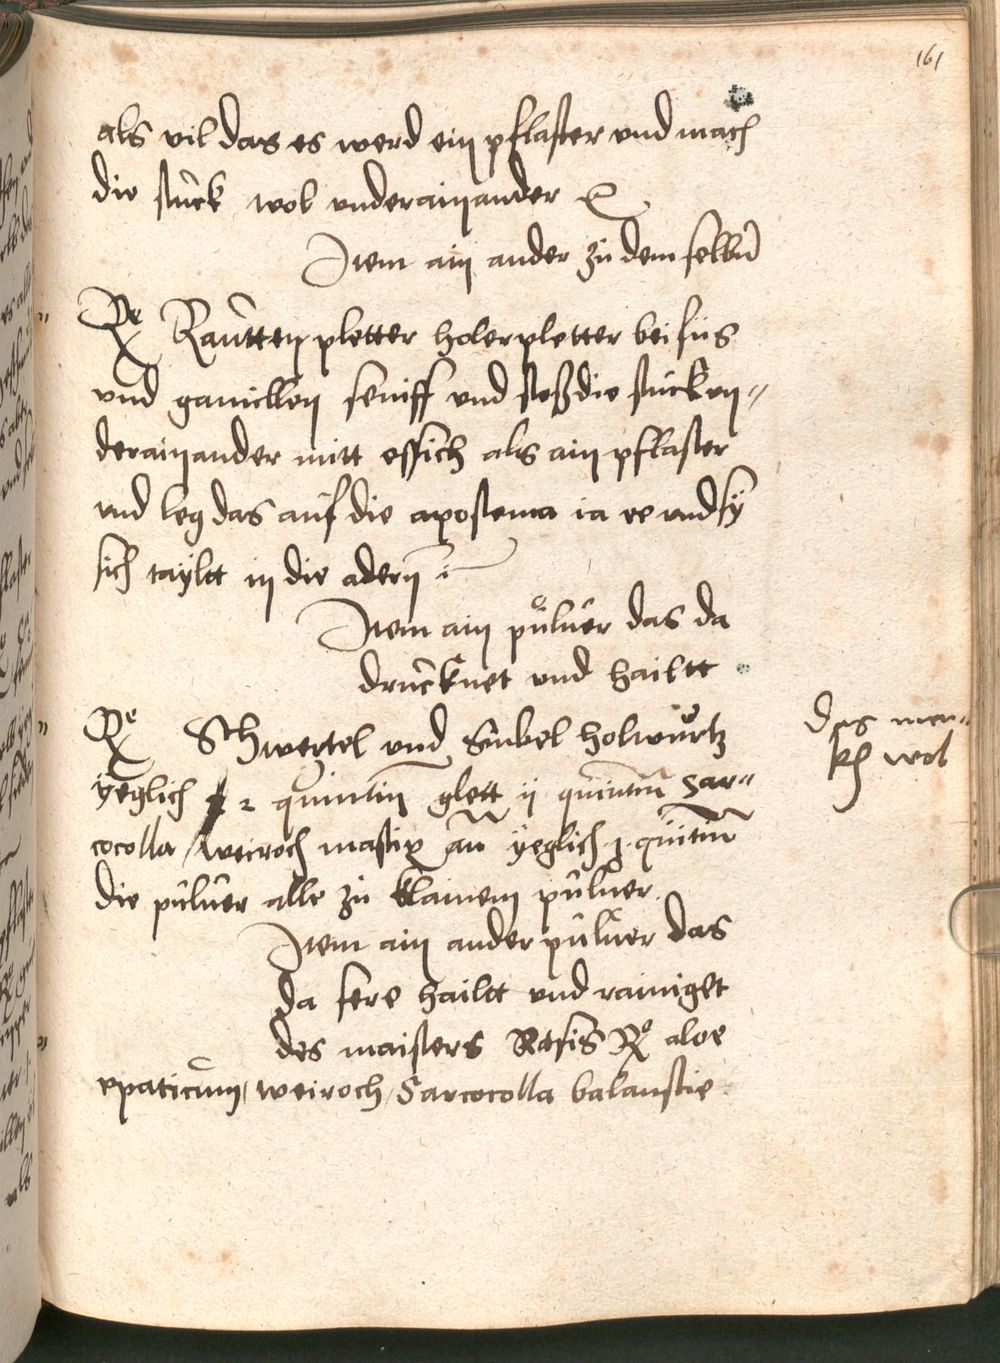 161
als vil das es werd ein pflaster vnd mach
die stuck wol vnderainander
Item ain ander zu dem selbn̄
Rx Rautten pletter holerpletter beifus
vnd gamillen seniff vnd stoß die stuck vn„
derainander mitt essich als ain pflaster
vnd leg das auf die apostema ia ee vnd sÿ
sich taÿltt in die adern
Item ain puluer das da
drucknet vnd hailtt
Rx Schwertel vnd Sinbel holwurtz
ÿeglich 2 quintin glett ij quintin̄ Sar„
cocolla / weiroch mastix an̄ ÿeglich j quitin̄
die puluer alle zu klainem puluer
Item ain ander puluer das
da sere hailtt vnd rainiget
des maisters Rasis Rx aloe
epaticum / weiroch / Sarcocolla balaustie
Das mer„
kh wol